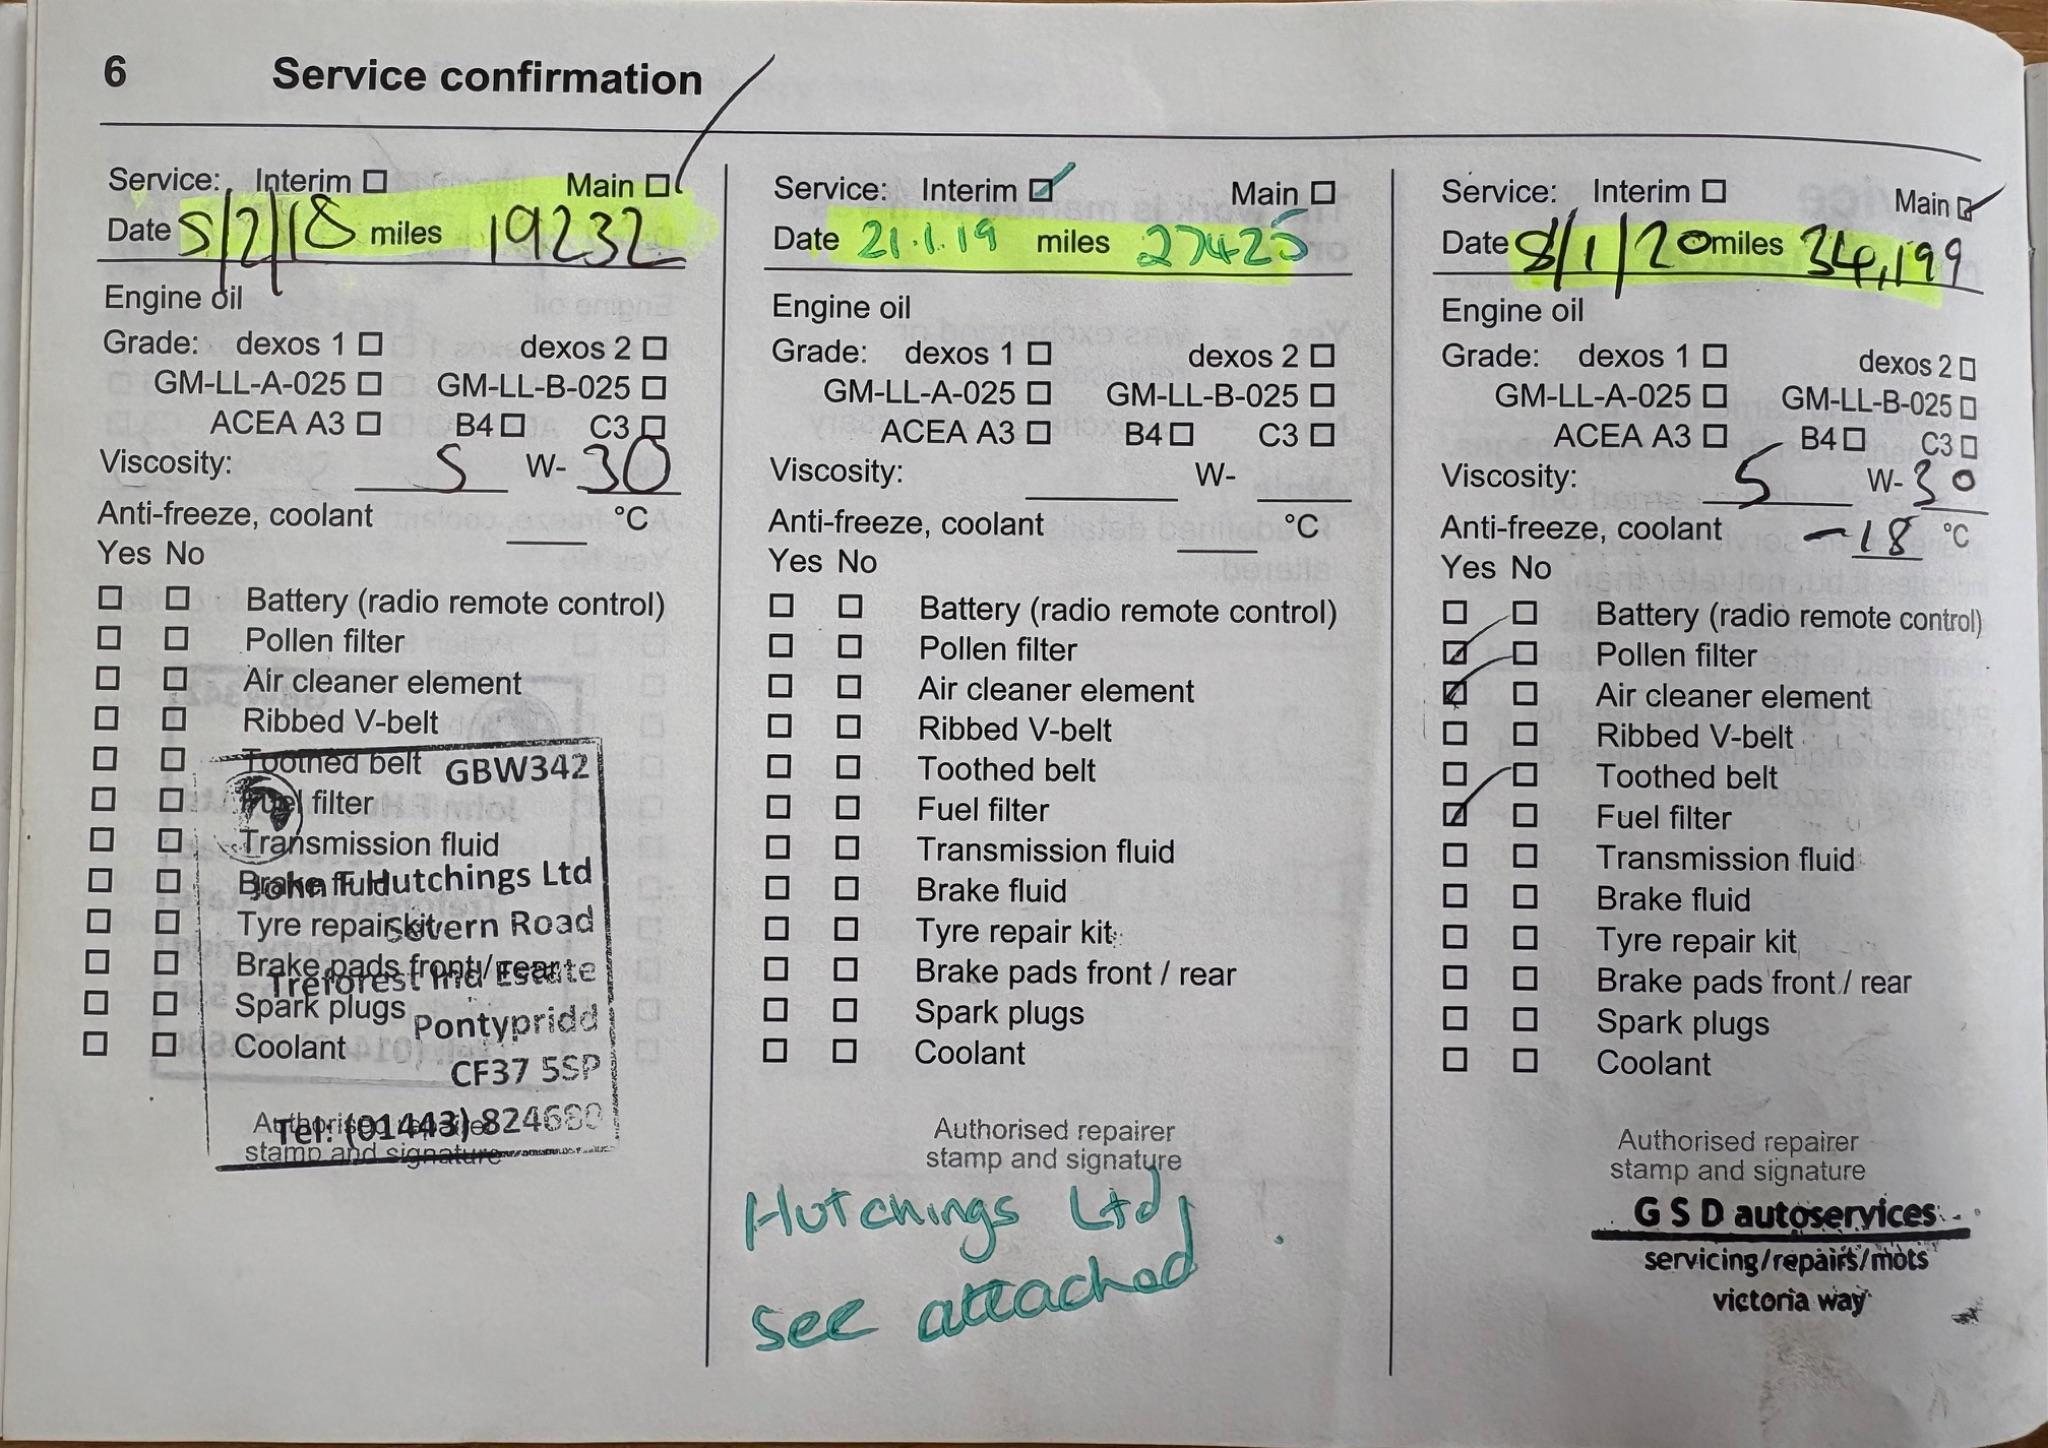 6 Service confirmation
Service: Interim ☐ Main ☑
Date 5/2/18 miles 19232
Engine oil
Grade: dexos 1 ☐ dexos 2 ☐
GM-LL-A-025 ☐ GM-LL-B-025 ☐
ACEA A3 ☐ B4 ☐ C3 ☐
Viscosity: 5 W- 30
Anti-freeze, coolant ___ °C
Yes No
☐ ☐ Battery (radio remote control)
☐ ☐ Pollen filter
☐ ☐ Air cleaner element
☐ ☐ Ribbed V-belt
☐ ☐ Toothed belt
☐ ☐ Fuel filter
☐ ☐ Transmission fluid
☐ ☐ Brake fluid
☐ ☐ Tyre repair kit
☐ ☐ Brake pads front / rear
☐ ☐ Spark plugs
☐ ☐ Coolant
Authorised repairer
stamp and signature
GBW342
John F Hutchings Ltd
Severn Road
Treforest Ind Estate
Pontypridd
CF37 5SP
Tel: (01443) 824680
Service: Interim ☑ Main ☐
Date 21.1.19 miles 27425
Engine oil
Grade: dexos 1 ☐ dexos 2 ☐
GM-LL-A-025 ☐ GM-LL-B-025 ☐
ACEA A3 ☐ B4 ☐ C3 ☐
Viscosity: ___ W- ___
Anti-freeze, coolant ___ °C
Yes No
☐ ☐ Battery (radio remote control)
☐ ☐ Pollen filter
☐ ☐ Air cleaner element
☐ ☐ Ribbed V-belt
☐ ☐ Toothed belt
☐ ☐ Fuel filter
☐ ☐ Transmission fluid
☐ ☐ Brake fluid
☐ ☐ Tyre repair kit
☐ ☐ Brake pads front / rear
☐ ☐ Spark plugs
☐ ☐ Coolant
Authorised repairer
stamp and signature
Hutchings Ltd,
see attached
Service: Interim ☐ Main ☑
Date 8/1/20 miles 34,199
Engine oil
Grade: dexos 1 ☐ dexos 2 ☐
GM-LL-A-025 ☐ GM-LL-B-025 ☐
ACEA A3 ☐ B4 ☐ C3 ☐
Viscosity: 5 W- 30
Anti-freeze, coolant -18 °C
Yes No
☐ ☐ Battery (radio remote control)
☑ ☐ Pollen filter
☑ ☐ Air cleaner element
☐ ☐ Ribbed V-belt
☐ ☐ Toothed belt
☑ ☐ Fuel filter
☐ ☐ Transmission fluid
☐ ☐ Brake fluid
☐ ☐ Tyre repair kit
☐ ☐ Brake pads front / rear
☐ ☐ Spark plugs
☐ ☐ Coolant
Authorised repairer
stamp and signature
G S D autoservices
servicing/repairs/mots
victoria way